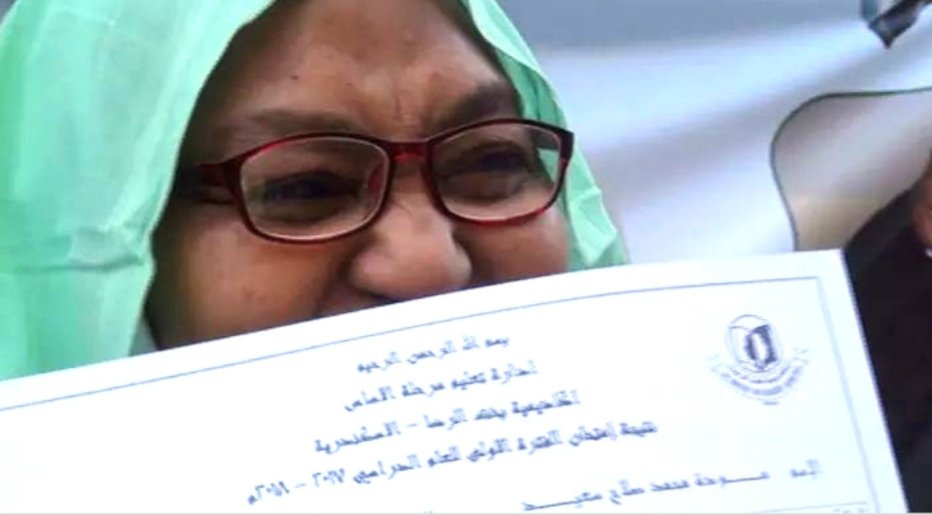 بسم الله الرحمن الرحيم
إدارة تعليم مرحلة الاساس
اكاديمية بخت الرضا - الاسكندرية
نتيجة إمتحان الفترة الأولى للعام الدراسي ٢٠١٧ - ٢٠١٨م
الإسم مودة محمد صلاح سعيد